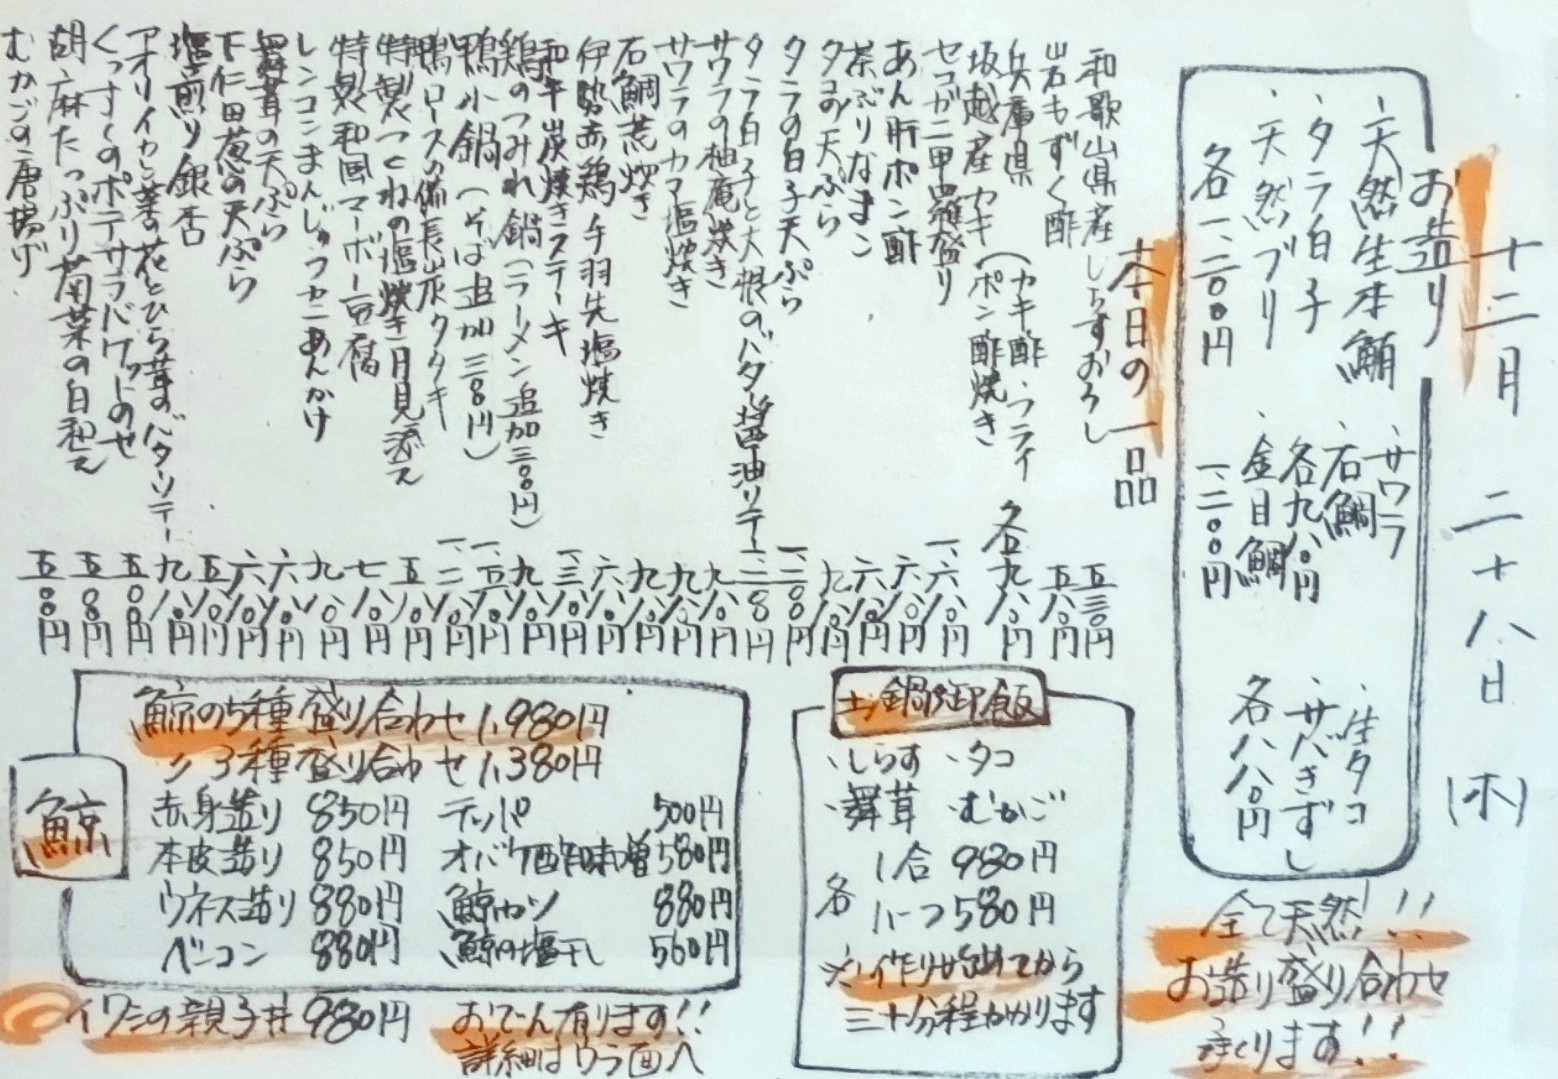 十二月 二十八日 (木)
お造り
・天然生本鮪
・タラ白子
・天然ブリ
各一、二〇〇円
・サワラ
・石鯛
各九八〇円
・金目鯛
一、二〇〇円
・生タコ
・サバきずし
各八八〇円
全て天然!!
お造り盛り合わせ
承ります!!
本日の一品
和歌山県産しらすおろし 五三〇円
岩もずく酢 五八〇円
兵庫県
坂越産カキ(カキ酢・フライ
ポン酢焼き 各九八〇円
セコガニ甲羅盛り 一、六八〇円
あん肝ポン酢 六八〇円
茶ぶりなまこ 六八〇円
タコの天ぷら 九八〇円
タラの白子天ぷら 一、二〇〇円
タラ白子と大根のバター醤油ソテー 一、二八〇円
サワラの柚庵焼き 九八〇円
サワラのカマ塩焼き 九八〇円
石鯛荒炊き 九八〇円
伊勢赤鶏手羽先塩焼き 六八〇円
和牛炭焼きステーキ 一、三八〇円
鶏のつみれ鍋(ラーメン追加三〇〇円) 九八〇円
鴨小鍋(そば追加三〇〇円) 一、五八〇円
鴨ロースの備長炭タタキ 一、二八〇円
特製つくねの塩焼き月見添え 五八〇円
特製和風マーボー豆腐 七八〇円
レンコンまんじゅうカニあんかけ 九八〇円
舞茸の天ぷら 六八〇円
下仁田葱の天ぷら 六八〇円
塩煎り銀杏 五八〇円
アオリイカと菜の花とひら茸のバターソテー 九八〇円
のポテサラバケットのせ 五〇〇円
胡麻たっぷり菊菜の白和え 五八〇円
むかごの唐揚げ 五〇〇円
土鍋御飯
・しらす ・タコ
・舞茸 ・むかご
各 1合 980円
ハーフ 580円
※作り始めてから
三十分程かかります
鯨
鯨の5種盛り合わせ 1,980円
〃 3種盛り合わせ 1,380円
赤身造り 850円 テッパ 500円
本皮造り 850円 オバケ酢味噌 580円
ウネス造り 880円 鯨カツ 880円
ベーコン 880円 鯨の塩干し 560円
イワシの親子丼 980円
おでん有ります!!
詳細はウラ面へ